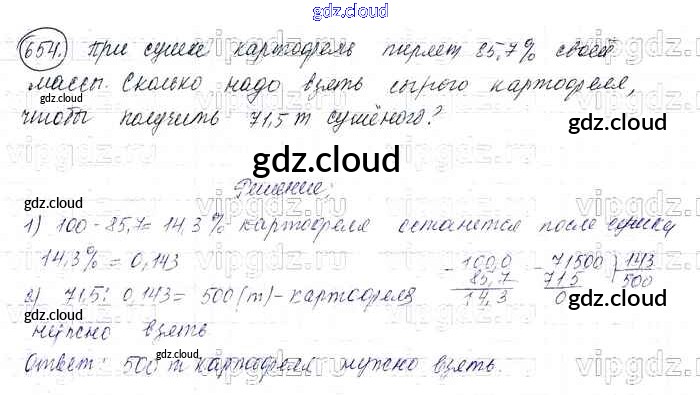 gdz.cloud
654. При сушке картофель теряет 85,7% своей
массы. Сколько надо взять сырого картофеля,
gdz.cloud gdz.cloud
чтобы получить 71,5 т сушёного?
gdz.cloud
gdz.cloud
Решение:
gdz.cloud
1) 100 - 85,7 = 14,3% картофеля останется после сушки
14,3% = 0,143
- 100,0 - 71500 143
85,7 715 500
14,3 0
2) 71,5 : 0,143 = 500 (т) - картофеля
gdz.cloud gdz.cloud
нужно взять
gdz.cloud
Ответ: 500 т картофеля нужно взять.
vipgdz.ru